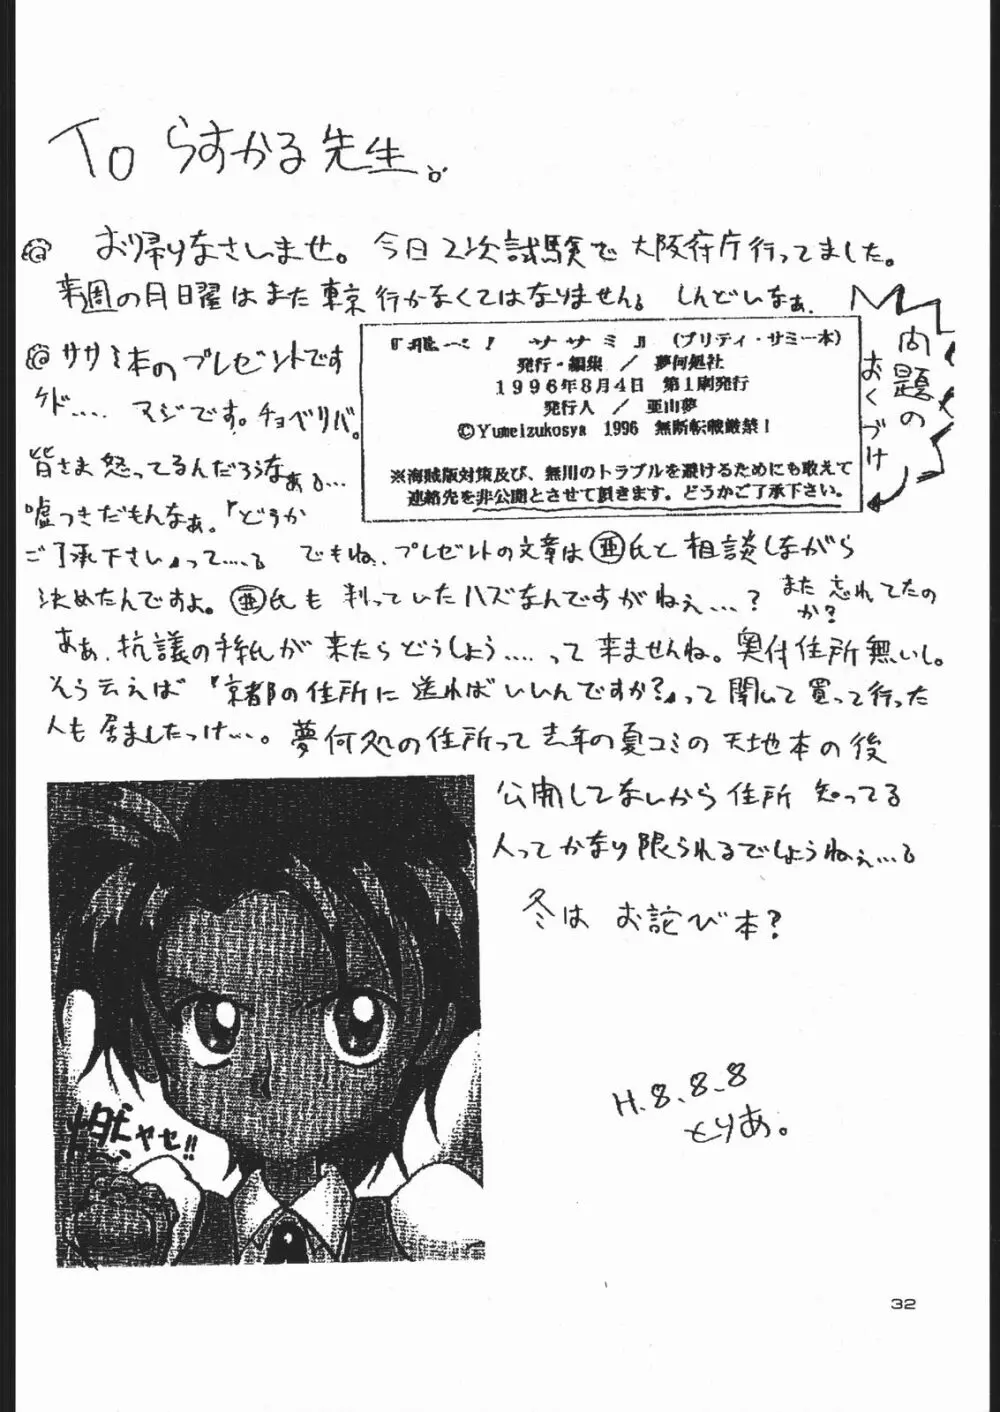 To らすかる先生。
@ お帰りなさいませ。今日2次試験で大阪府庁行ってました。
来週の月曜はまた東京行かなくてはなりません。しんどいなぁ。
@ ササミ本のプレゼントです
ケド.... マジです。チョベリバ。
皆さま怒ってるんだろうなぁ。...
嘘つきだもんなぁ。『どうか
ご了承下さい』って....。でもね、プレゼントの文章は亜氏と相談しながら
決めたんですよ。亜氏も判っていたハズなんですがねぇ...? また忘れてたの
か?
ああ、抗議の手紙が来たらどうしよう....って来ませんね。奥付住所無いし。
そう云えば『京都の住所に送ればいいんですか?』って聞いて買って行った
人も居ましたっけ...。夢何処の住所って去年の夏コミの天地本の後
公開してないから住所知ってる
人ってかなり限られるでしょうねぇ...。
冬はお詫び本?
問題の
おくづけ
『飛べ! ササミ』(プリティ・サミー本)
発行・編集 / 夢何処社
1996年8月4日 第1刷発行
発行人 / 亜山夢
©Yumeizukosya 1996 無断転載厳禁!
※海賊版対策及び、無用のトラブルを避けるためにも敢えて
連絡先を非公開とさせて頂きます。どうかご了承下さい。
燃やせ!!
H.8.8.8
とりあ。
32